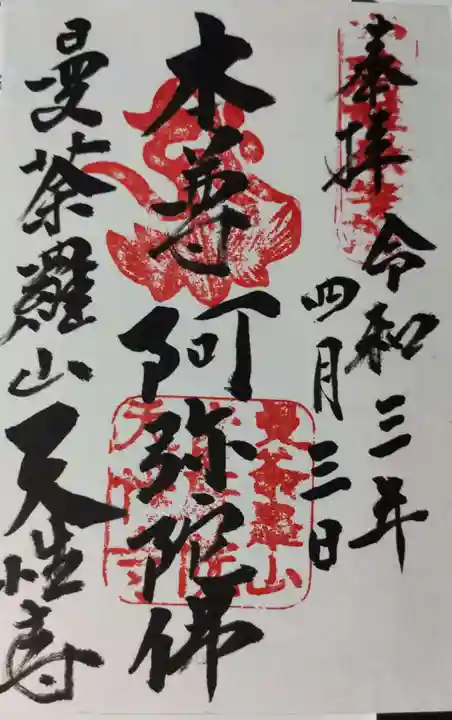 奉拝
令和三年
四月三日
本尊 阿弥陀佛
曼荼羅山 天性寺